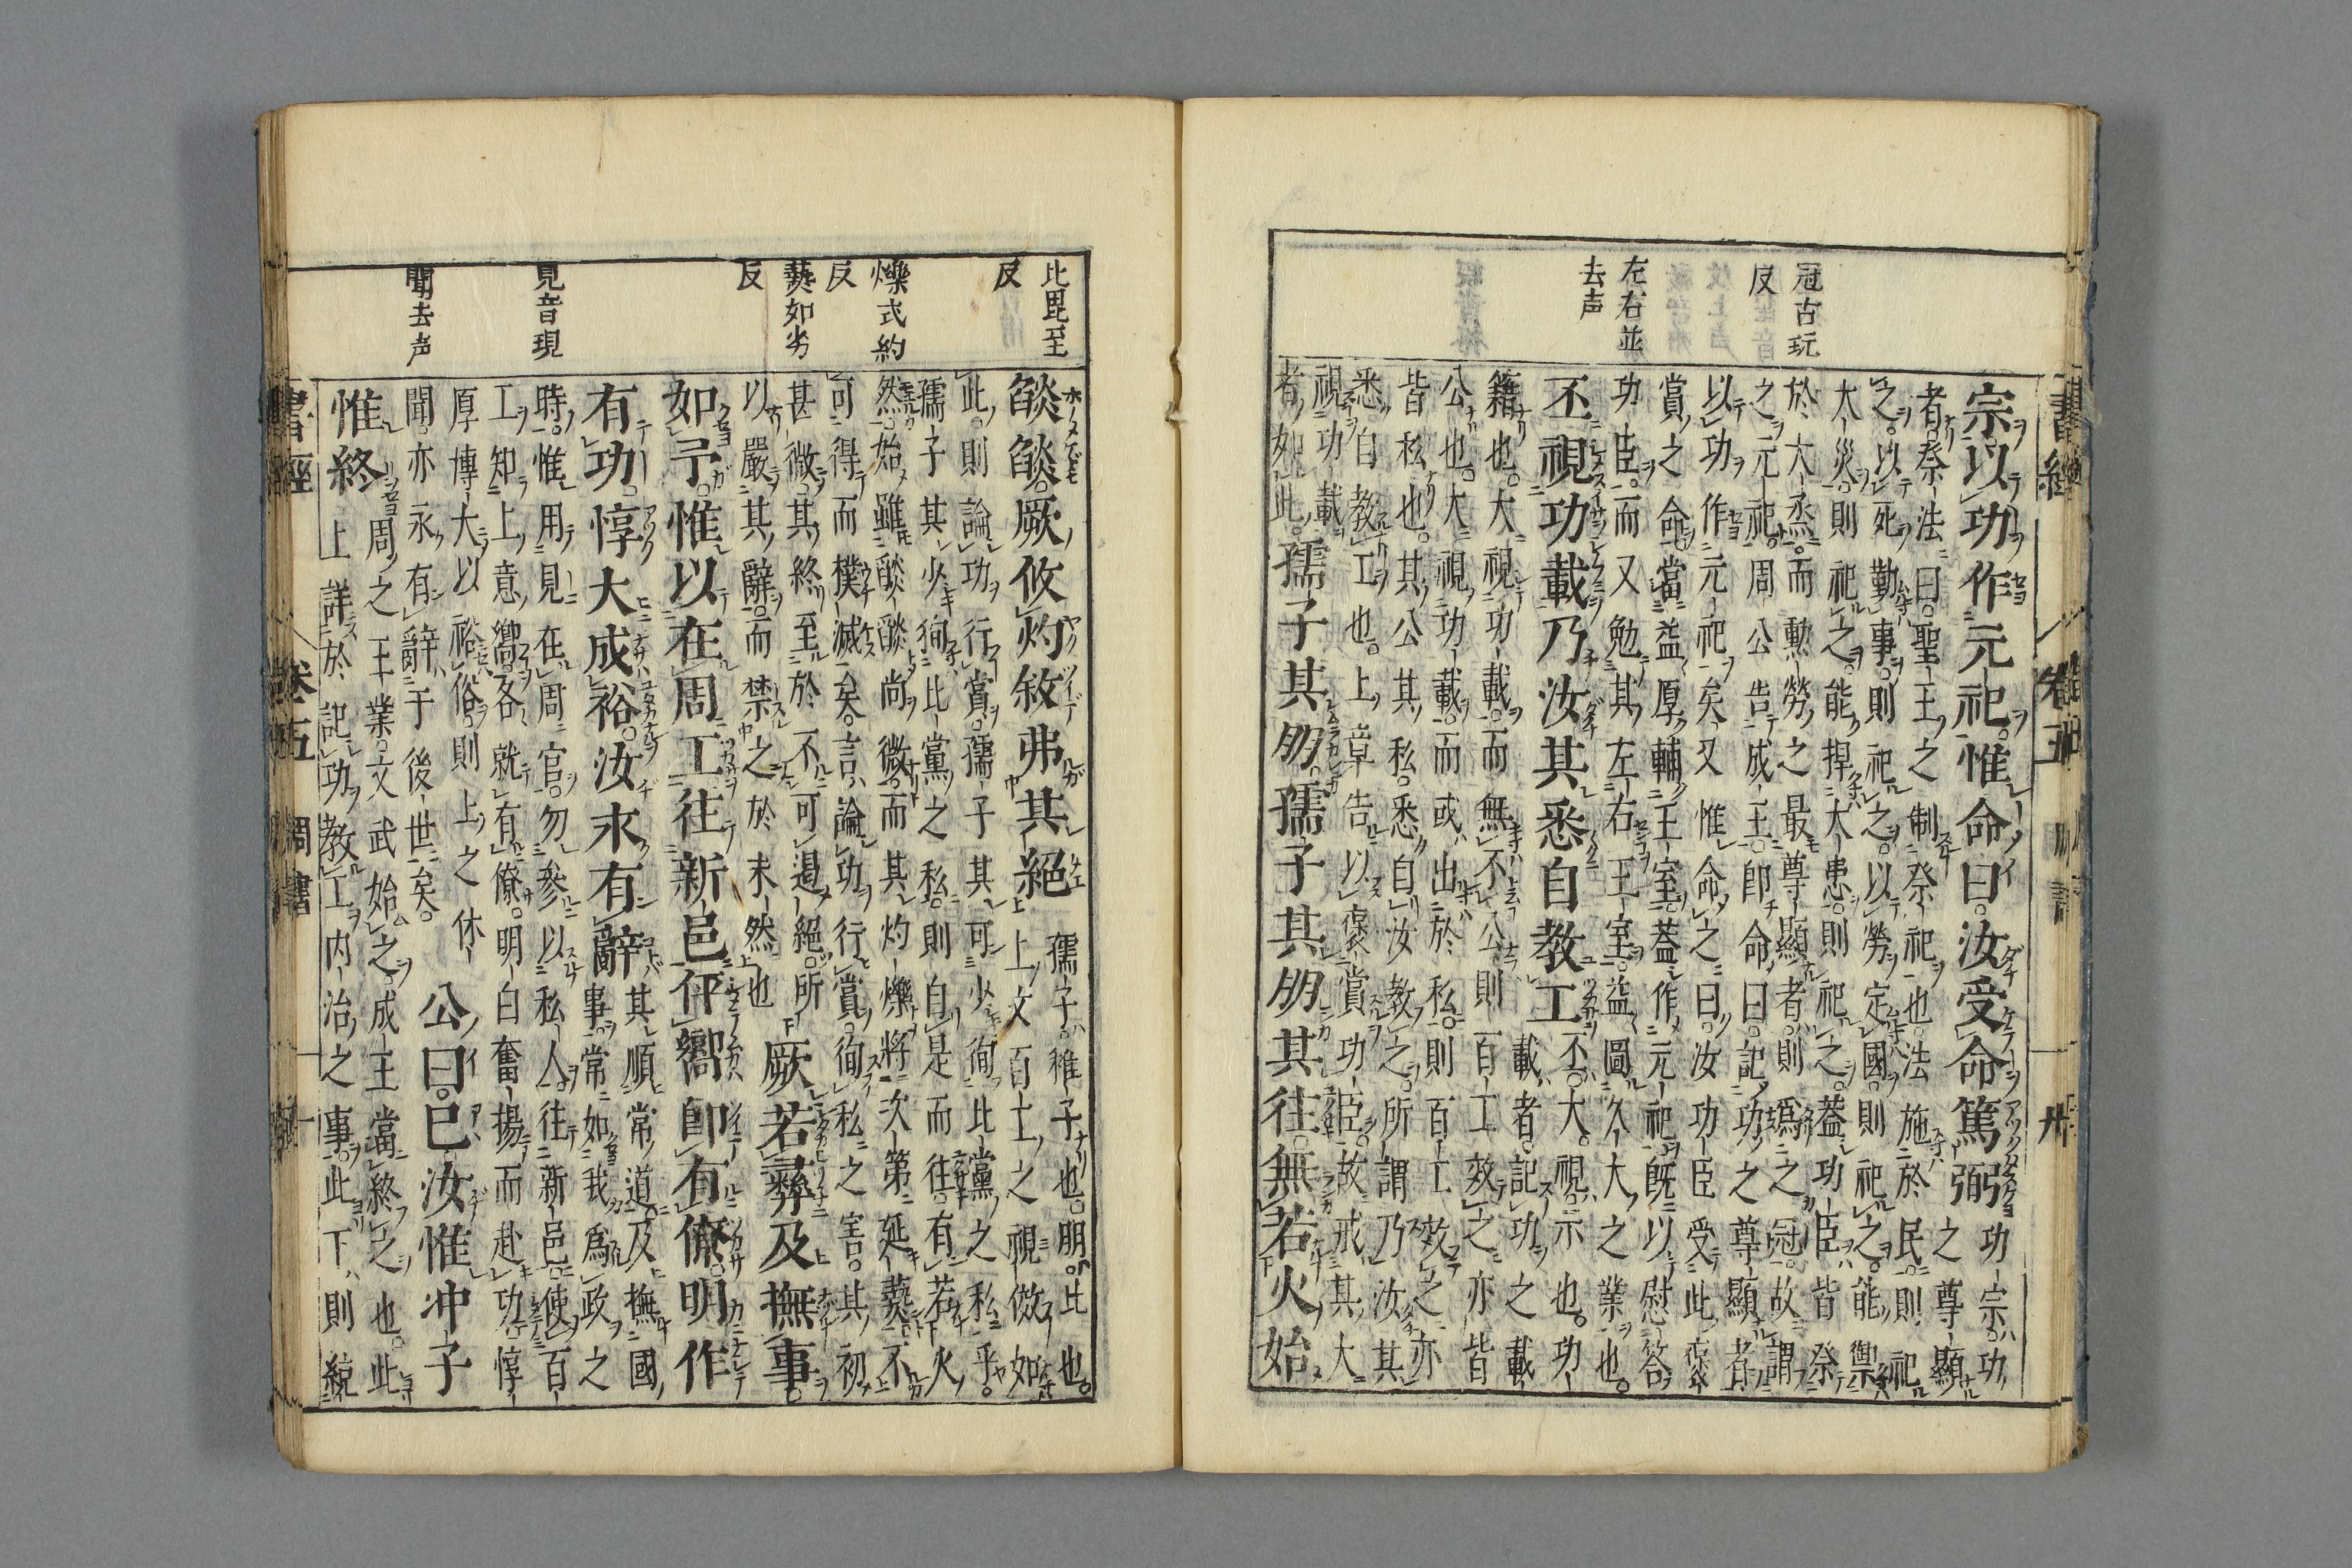 冠古玩
反
左右並
去声
宗以功作元祀惟命曰汝受命篤弼功宗功
之尊顯
者祭法曰聖王之制祭祀也法施於民則祀
之以死勤事則祀之以勞定國則祀之能禦
大災則祀之能捍大患則祀之蓋功臣皆祭
於大烝而勲勞之最尊顯者則爲之冠故謂
之元祀周公告成王即命曰記功之尊顯者
以功作元祀矣又惟命之曰汝功臣受此褒
賞之命當益厚輔王室蓋作元祀既以慰答
功臣而又勉其左右王室益圖久大之業也
丕視功載乃汝其悉自教工丕大視示也功
載者記功之載
籍也大視功載而無不公則百工效之亦皆
公也大視功載而或出於私則百工效之亦
皆私也其公其私悉自汝教之所謂乃汝其
悉自教工也上章告以褒賞功臣故戒其大
視功載
者如此
孺子其朋孺子其朋其往無若火始
比毘至
反
爍式約
反
爇如劣
反
見音現
聞去声
燄燄厥攸灼敘弗其絕孺子稚子也朋比也
上文百工之視傚如
此則論功行賞孺子其可少徇比黨之私乎
孺子其少徇比黨之私則自是而往有若火
然始雖燄燄尚微而其灼爍將次第延爇不
可得而撲滅矣言論功行賞徇私之害其初
甚微其終至於不可遏絕所
以嚴其辭而禁之於未然也
厥若彝及撫事
如予惟以在周工往新邑伻嚮即有僚明作
有功惇大成裕汝永有辭其順常道及撫國
事常如我爲政之
時惟用見在周官勿參以私人往新邑使百
工知上意嚮各就有僚明白奮揚而赴功惇
厚博大以裕俗則上之休
聞亦永有辭于後世矣
公曰已汝惟冲子
惟終周之王業文武始之成王當終之也此
上詳於記功教工内治之事此下則統
書經
卷五
周書